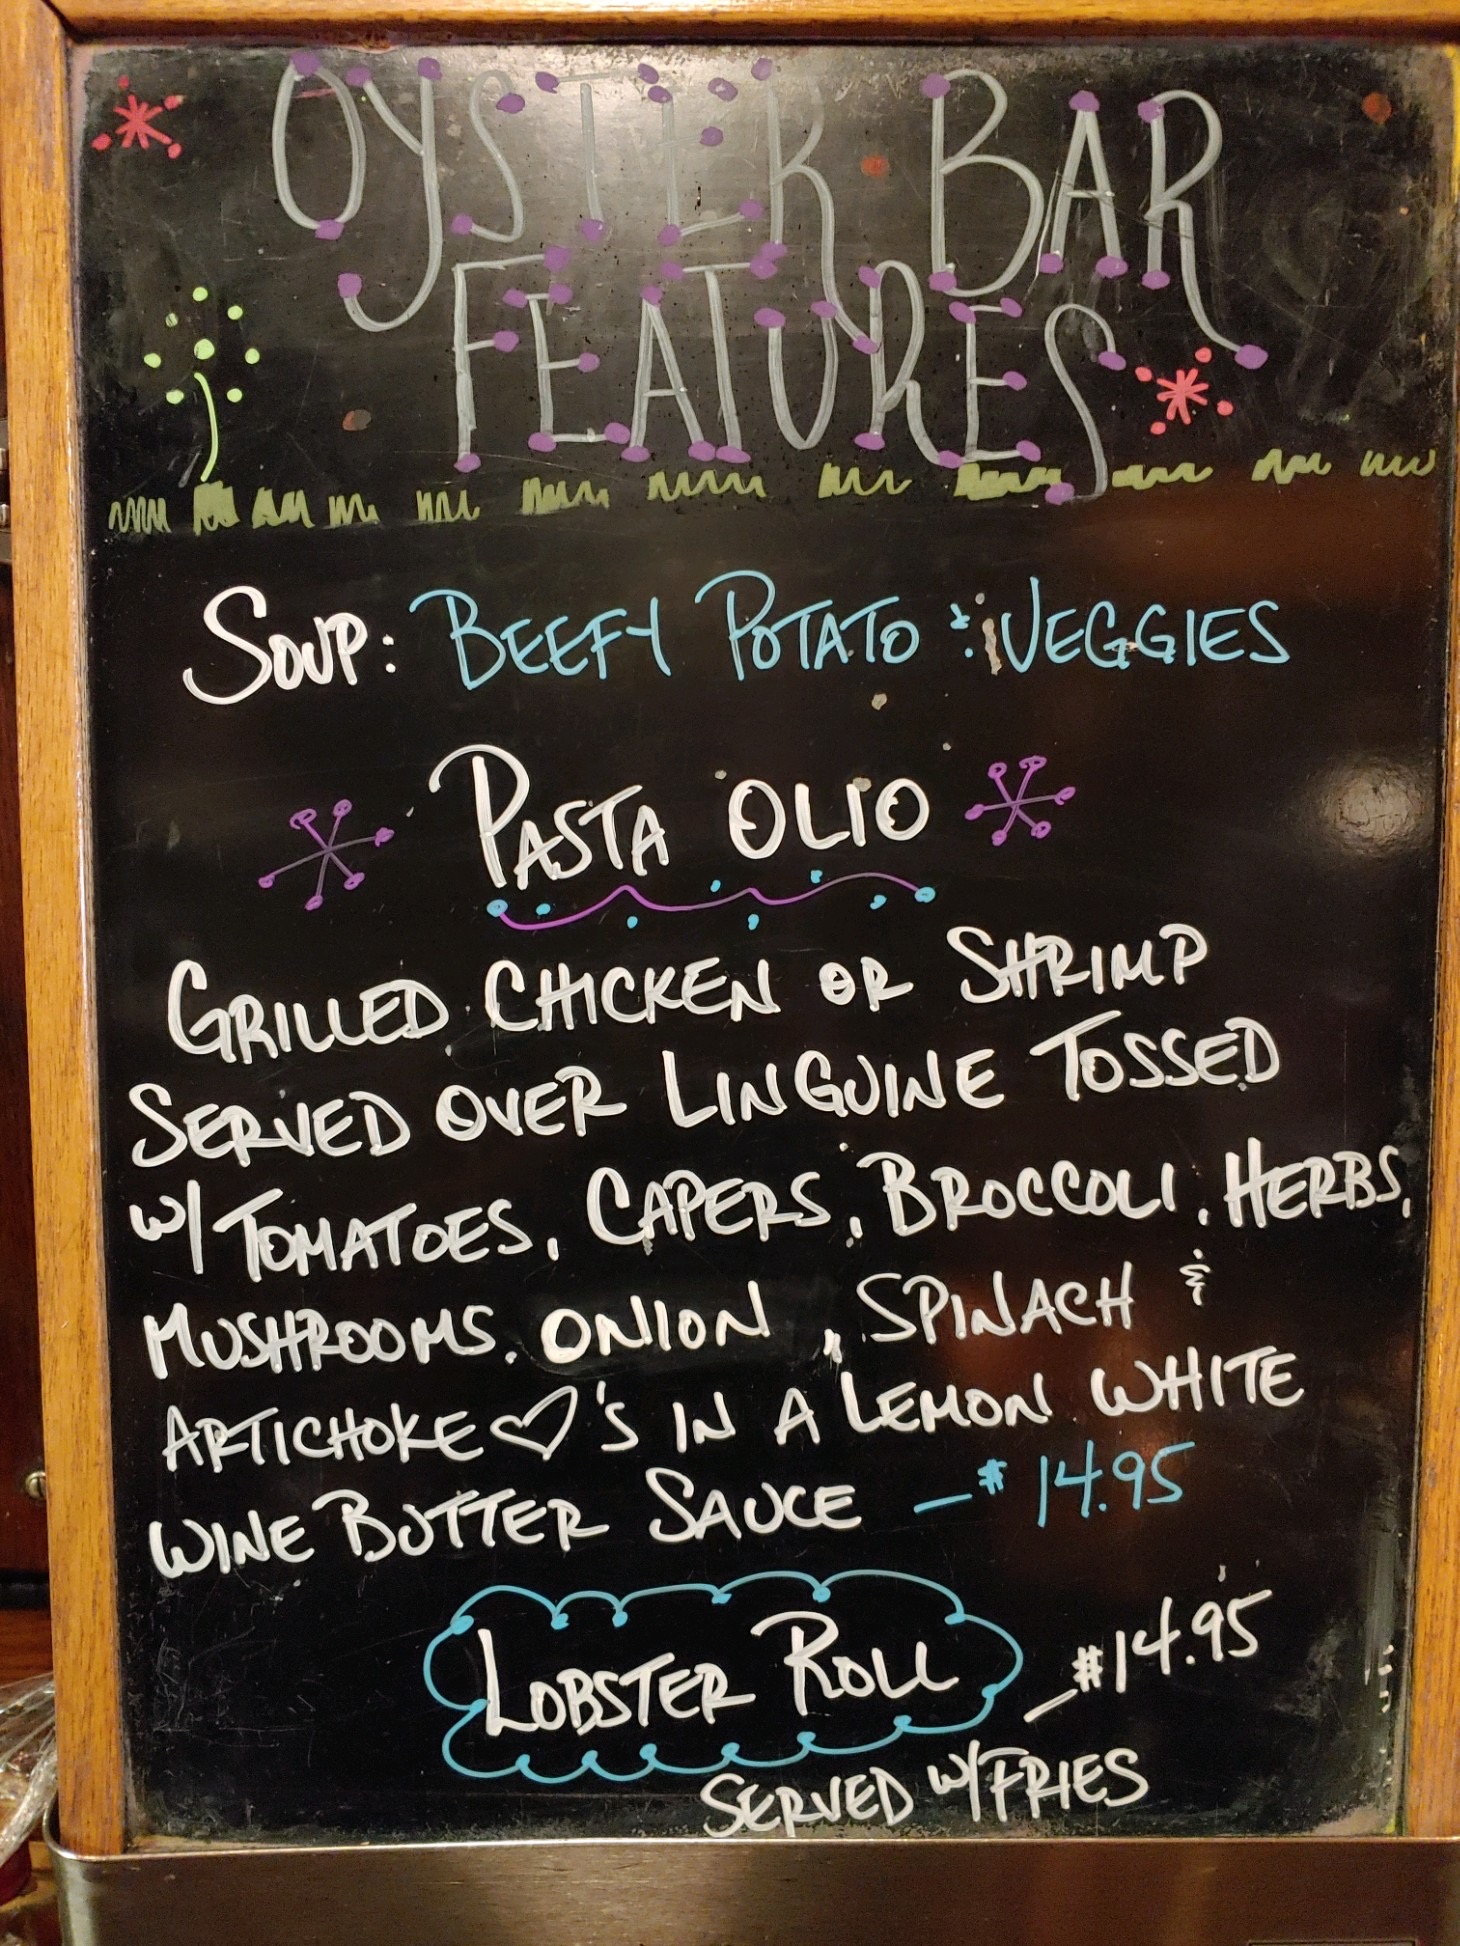 OYSTER BAR
FEATURES
SOUP: BEEFY POTATO & VEGGIES
PASTA OLIO
GRILLED CHICKEN OR SHRIMP
SERVED OVER LINGUINE TOSSED
W/ TOMATOES, CAPERS, BROCCOLI, HERBS,
MUSHROOMS, ONION, SPINACH &
ARTICHOKE ♡'S IN A LEMON WHITE
WINE BUTTER SAUCE — $14.95
LOBSTER ROLL — $14.95
SERVED W/ FRIES